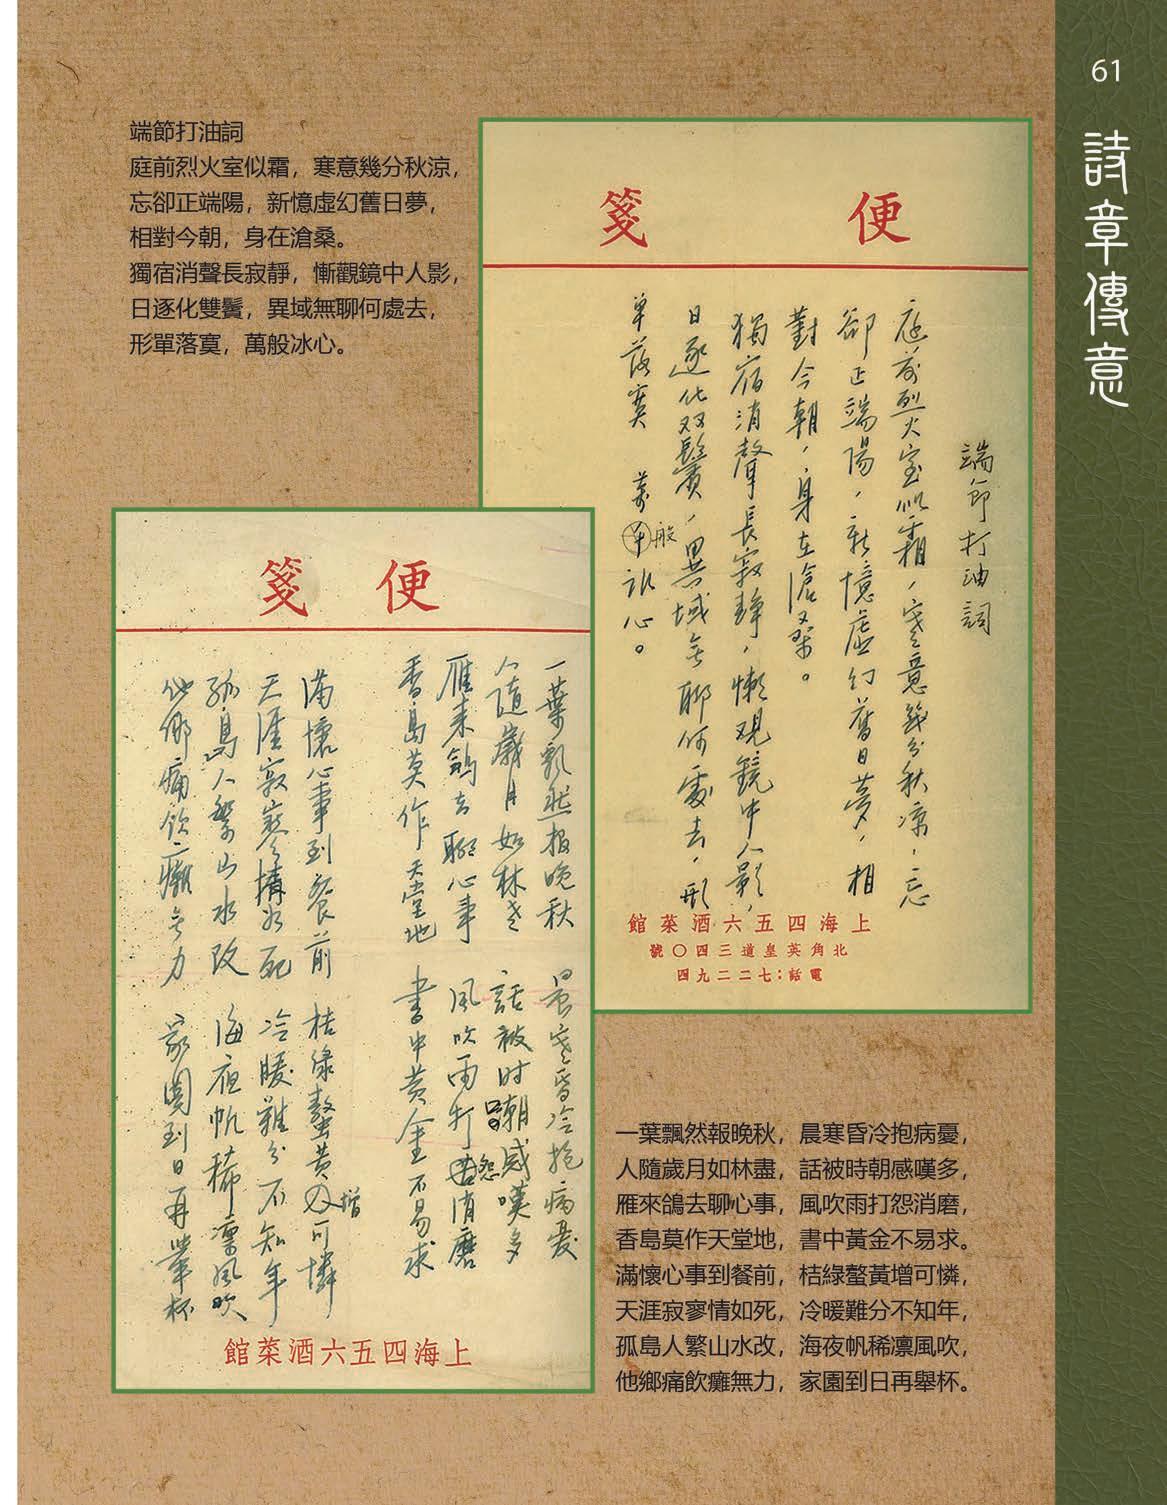 61
詩章傳意
端節打油詞
庭前烈火室似霜，寒意幾分秋涼，
忘卻正端陽，新憶虛幻舊日夢，
相對今朝，身在滄桑。
獨宿消聲長寂靜，慚觀鏡中人影，
日逐化雙鬢，異域無聊何處去，
形單落寞，萬般冰心。
便箋
端節打油詞
庭前烈火室似霜，寒意幾分秋凉，忘
卻正端陽，新憶虛幻舊日夢，相
對今朝，身在滄桑。
獨宿消聲長寂靜，懶观鏡中人影，
日逐化双鬢，異域無聊何處去，形
单落寞 萬般冰心。
上海四五六酒菜館
北角英皇道三四〇號
電話：七二二九四
便箋
一葉飘然报晚秋 晨寒昏冷抱病憂
人隨歲月如林尽 話被时朝感嘆多
雁来鴿去聊心事 風吹雨打怨消磨
香島莫作天堂地 書中黄金不易求
滿懷心事到餐前 桔綠螯黄增可憐
天涯寂寥情如死 冷暖難分不知年
孤島人繁山水改 海夜帆稀凛風吹
他鄉痛飲癱無力 家園到日再舉杯
上海四五六酒菜館
一葉飄然報晚秋，晨寒昏冷抱病憂，
人隨歲月如林盡，話被時朝感嘆多，
雁來鴿去聊心事，風吹雨打怨消磨，
香島莫作天堂地，書中黃金不易求。
滿懷心事到餐前，桔綠螯黃增可憐，
天涯寂寥情如死，冷暖難分不知年，
孤島人繁山水改，海夜帆稀凛風吹，
他鄉痛飲癱無力，家園到日再舉杯。